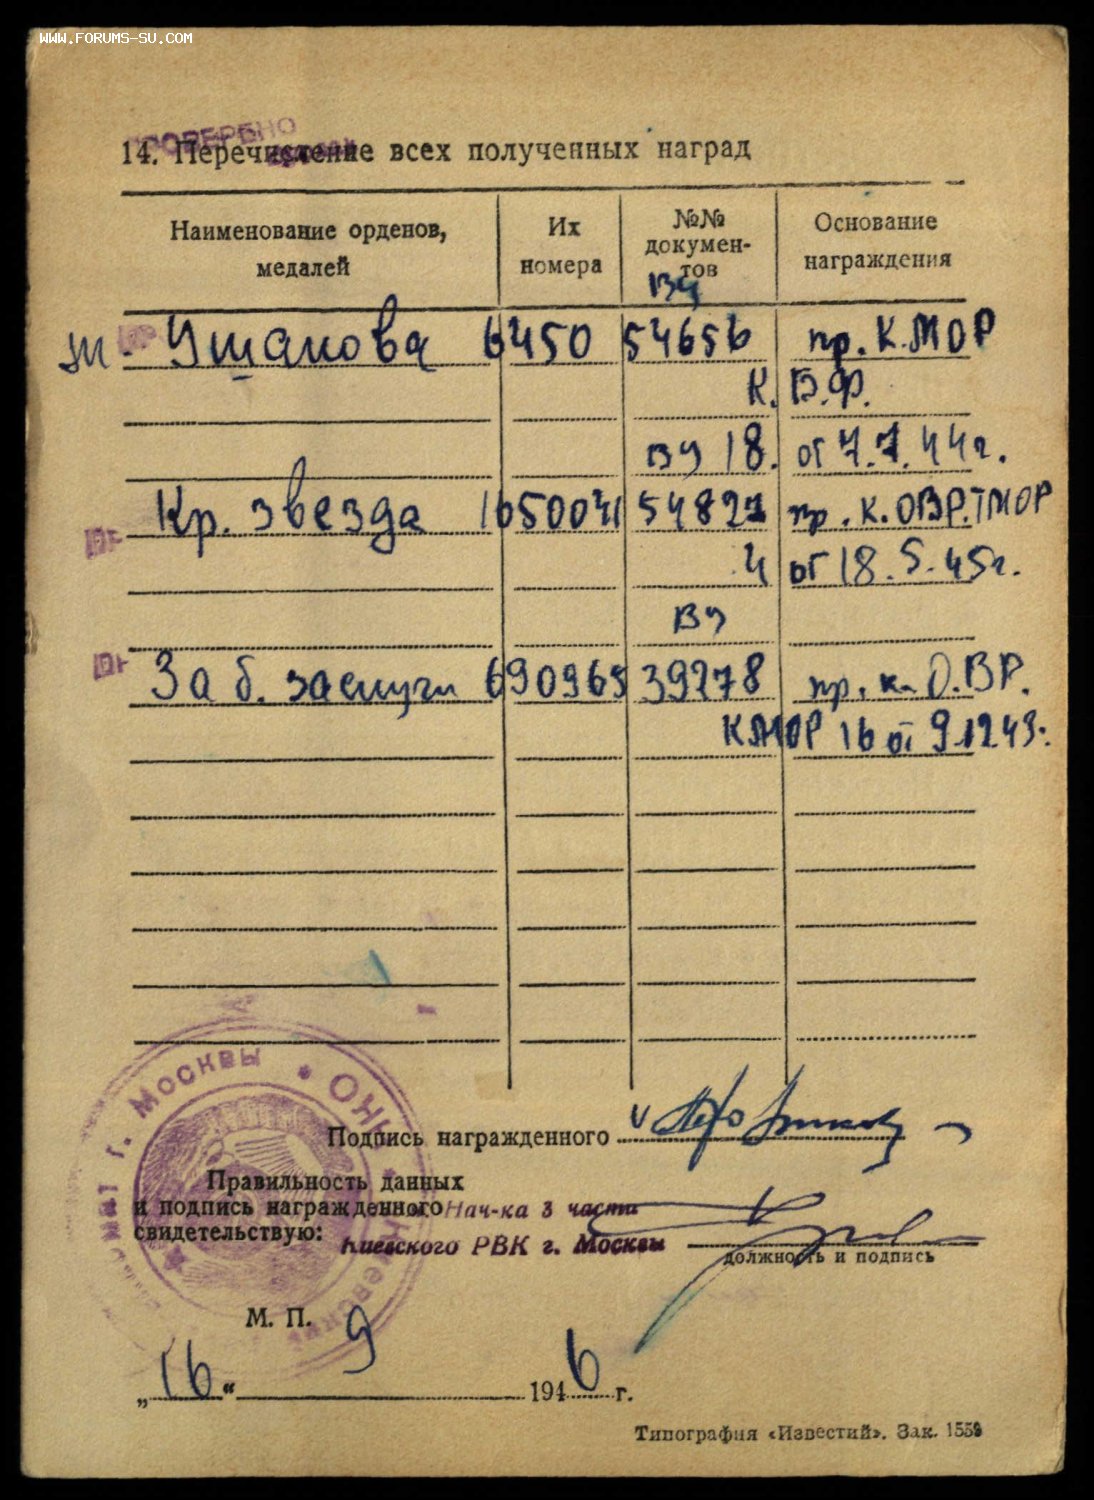 WWW.FORUMS-SU.COM
ПРОВЕРЕНО
14. Перечисление всех полученных наград
Наименование орденов, медалей
Их номера
№№ докумен-тов
Основание награждения
ВЧ
м. Ушакова 6450 54656 пр. К.МОР
К. В.Ф.
ВУ 18. от 7.7.44г.
Кр. звезда 1650041 54827 пр. К. ОВР.ТМОР
4 от 18.5.45г.
ВУ
За б. заслуги 690965 39278 пр. к. О.ВР.
КМОР 16 от 9.12.43.
г. Москвы
Подпись награжденного
Правильность данных
и подпись награжденного Нач-ка 3 части
свидетельствую: Киевского РВК г. Москвы
должность и подпись
М. П. 9
„16“ 1946 г.
Типография «Известий». Зак. 1559